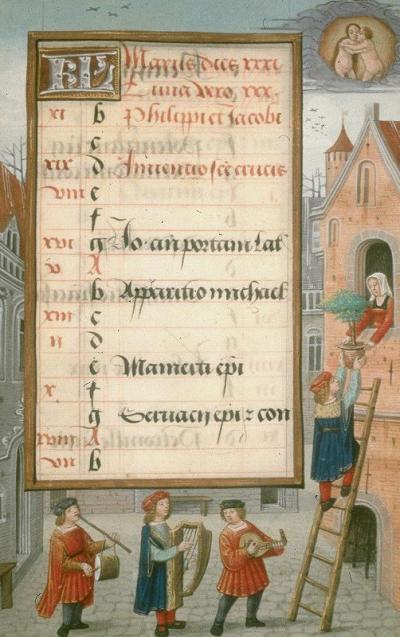 KL Maius dies xxxi
Luna vero xxx.
xi b Philippi et Jacobi
c
xix d Inventio sce crucis
viii e
f
xvi g Jo. an portam lat
v A
b Apparitio michael
xiii c
ii d
e Mamerti epi
x f
g Servacij epi z con
xviii A
vii b